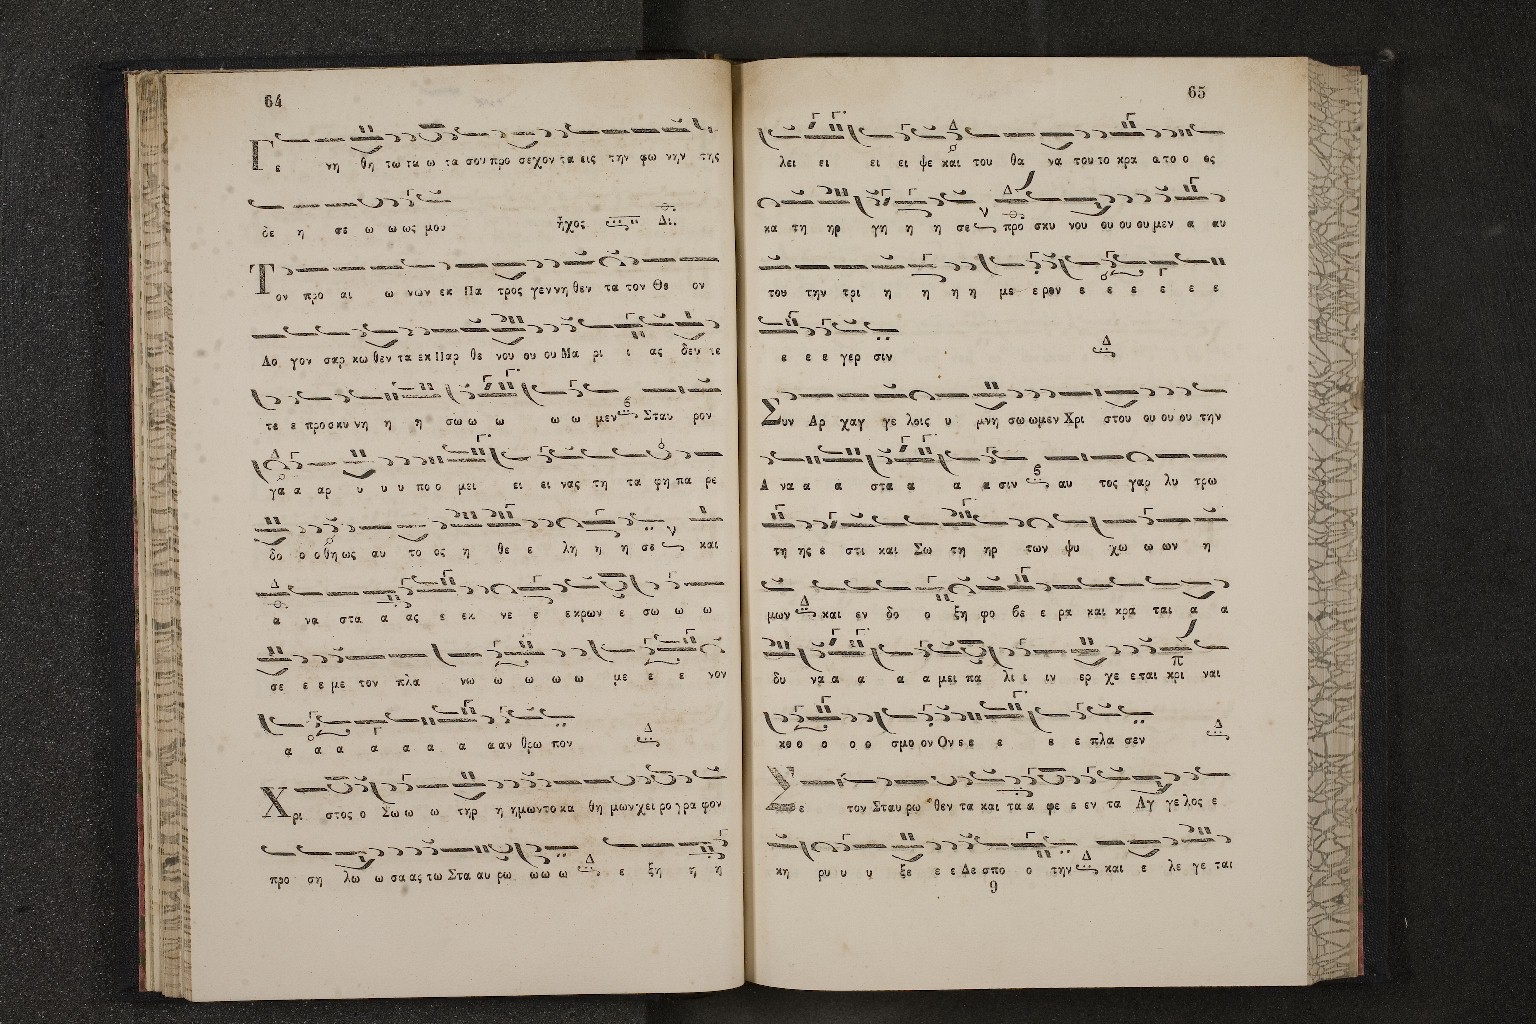 64
Γε νη θη τω τα ω τα σου προ σε χον τα εις την φω νην της
δε η σε ω ω ως μου ἦχος Δι
Τον προ αι ω νων εκ Πα τρος γεν νη θεν τα τον Θε ον
Λο γον σαρ κω θεν τα εκ Παρ θε νου ου ου Μα ρι ι ας δευ τε
τε ε προ σκυ νη η η σω ω ω ω ω μεν Σταυ ρον
γα α αρ υ υ υ πο ο μει ει ει νας τη τα φη πα ρε
δο ο ο θη ως αυ το ος η θε ε λη η η σε και
α να στα α ας ε εκ νε ε εκ ρων ε σω ω ω
σε ε ε με τον πλα νω ω ω ω ω με ε ε νον
α α α α α α α α αν θρω πον
Χρι στος ο Σω ω ω τηρ η η μων το κα θη μων χει ρο γρα φον
προ ση λω ω σα ας τω Στα αυ ρω ω ω ω ε ξη η η
65
λει ει ει ει ψε και του θα να του το κρα α το ο ος
κα τη ηρ γη η η σε προ σκυ νου ου ου ου μεν α αυ
του την τρι η η η η με ε ρον ε ε ε ε ε ε
ε ε ε γερ σιν
Συν Αρ χαγ γε λοις υ μνη σω ω μεν Χρι στου ου ου ου την
Α να α α στα α α α σιν αυ τος γαρ λυ τρω
τη ης ε στι και Σω τη ηρ των ψυ χω ω ων η
μων και εν δο ο ξη φο βε ε ρα και κρα ται α α
δυ να α α α α μει πα λι ι ιν ερ χε ε ται κρι ναι
κο ο ο ο ο σμο ον Ον ε ε ε ε ε πλα σεν
Σε τον Σταυ ρω θεν τα και τα α φε ε εν τα Αγ γε λος ε
κη ρυ υ υ ξε ε ε Δε σπο ο την και ε λε γε ται
9